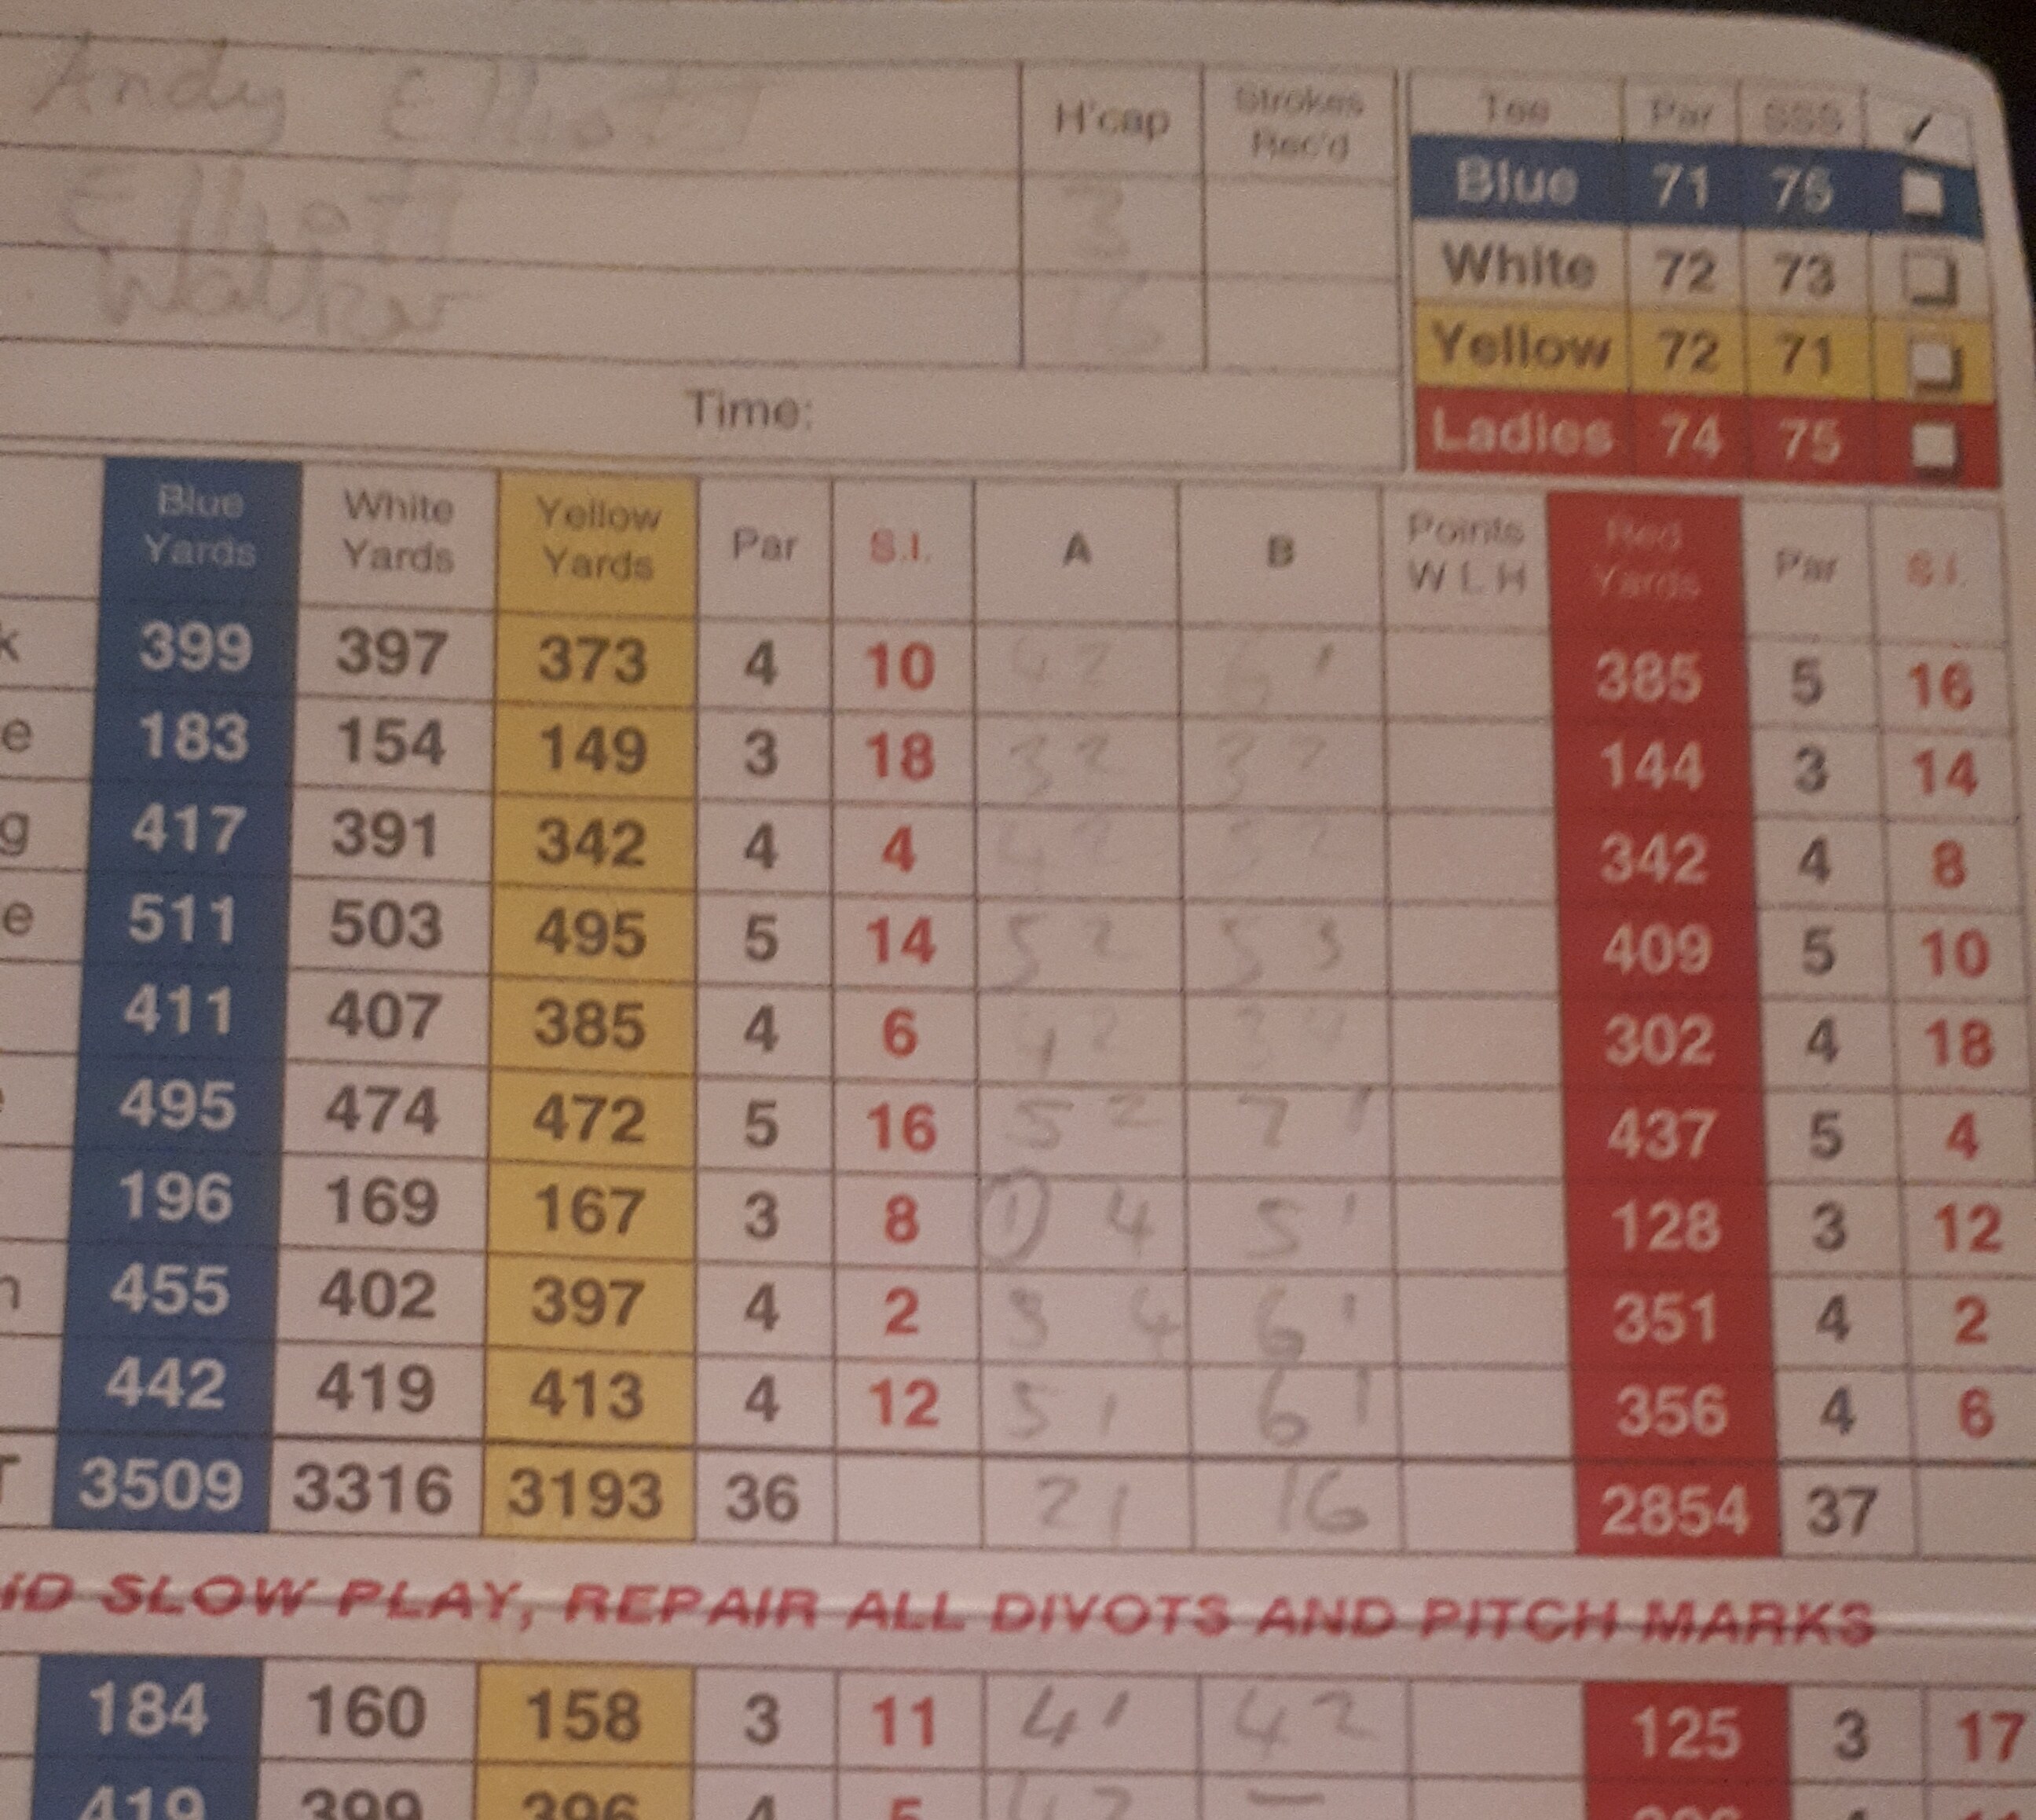 Andy Elliott
H'cap Strokes Rec'd
Tee Par SSS ✓
Elliott 3
Blue 71 75
Walker 16
White 72 73
Yellow 72 71
Time:
Ladies 74 75
Blue Yards White Yards Yellow Yards Par S.I. A B Points W L H Red Yards Par S.I.
k 399 397 373 4 10 4 2 6 1 385 5 16
e 183 154 149 3 18 3 2 3 2 144 3 14
g 417 391 342 4 4 4 2 5 2 342 4 8
e 511 503 495 5 14 5 2 5 3 409 5 10
411 407 385 4 6 4 2 302 4 18
495 474 472 5 16 5 2 7 1 437 5 4
196 169 167 3 8 1 4 5 1 128 3 12
455 402 397 4 2 3 4 6 1 351 4 2
442 419 413 4 12 5 1 6 1 356 4 6
3509 3316 3193 36 21 16 2854 37
SLOW PLAY, REPAIR ALL DIVOTS AND PITCH MARKS
184 160 158 3 11 4 1 4 2 125 3 17
419 399 396 4 5 4 2 —